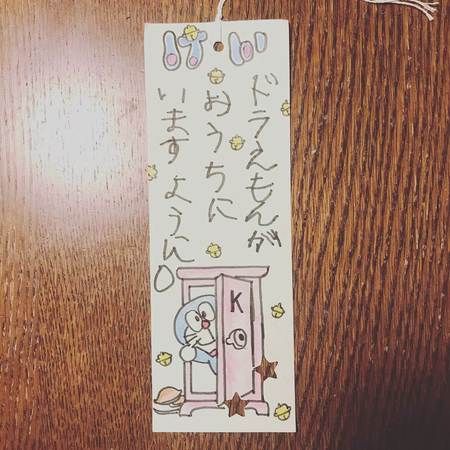 けい
ドラえもんが
おうちに
いますように。
K